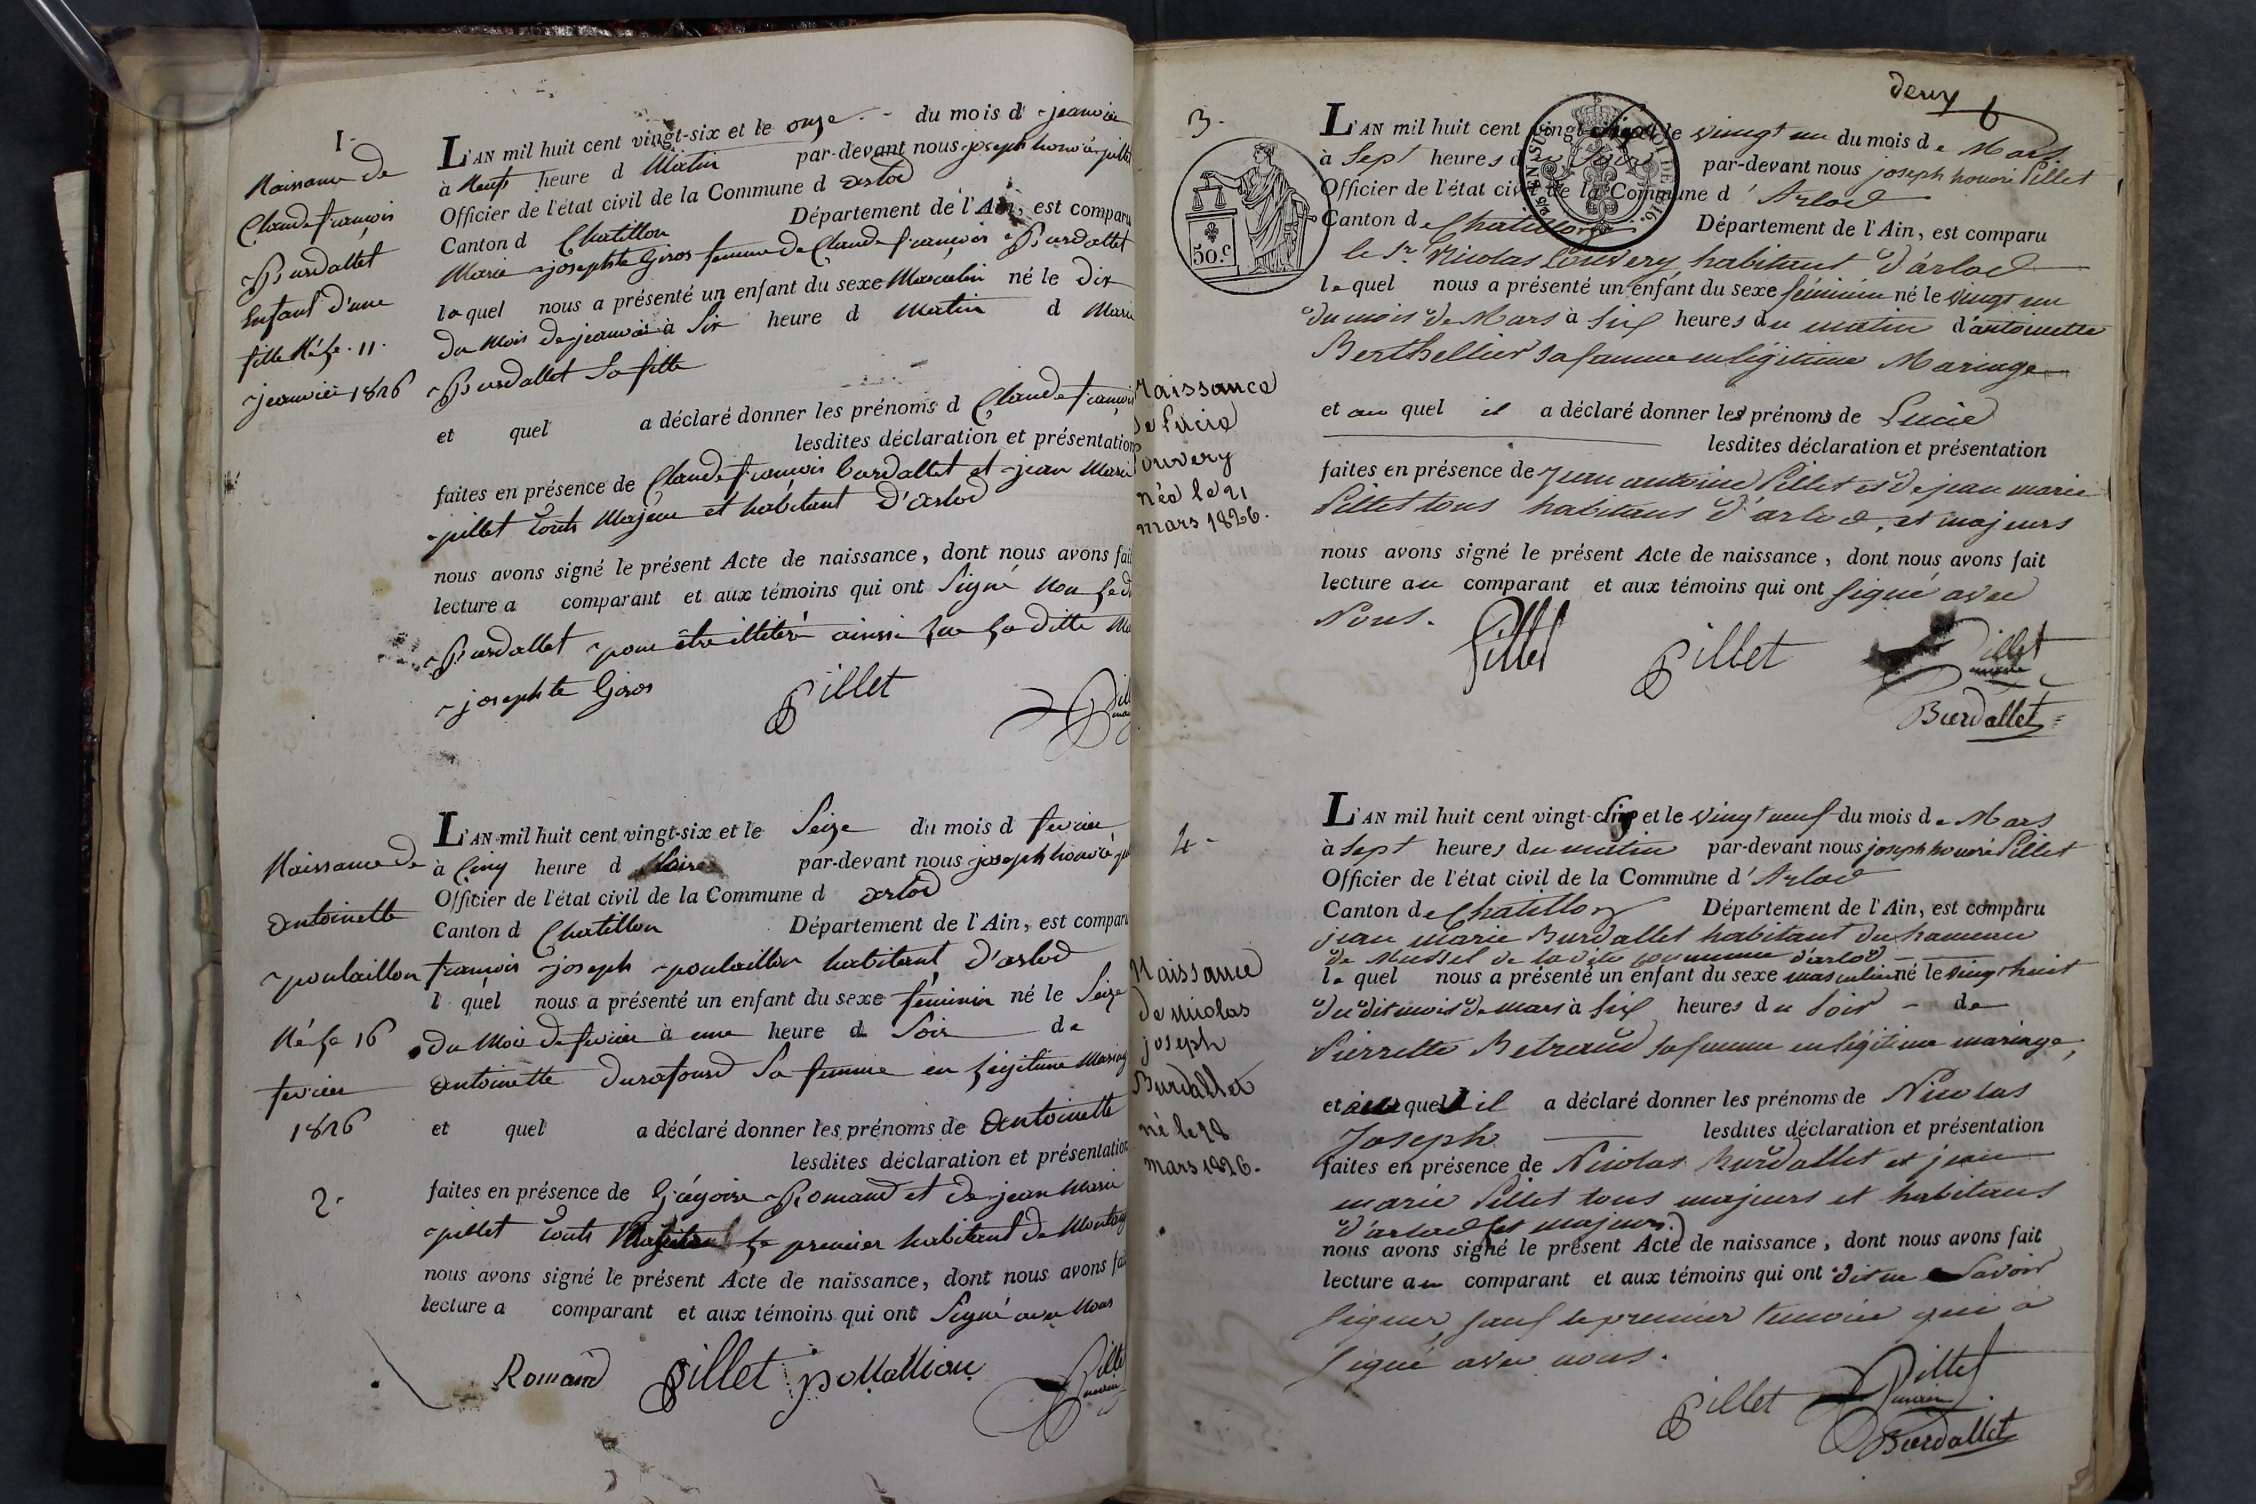 1.
Naissance de
Claude françois
Burdallet
Enfant d'une
fille Né le 11
janvier 1826
L'AN mil huit cent vingt-six et le onze du mois d janvier
à Neuf heure d Matin par-devant nous joseph honoré pillet
Officier de l'état civil de la Commune d arlod
Canton d Chatillon Département de l'Ain, est comparu
Marie josephte Giros femme de Claude françois Burdallet
laquel nous a présenté un enfant du sexe Masculin né le dix
du Mois de janvier à Six heure d Matin d Marie
Burdallet Sa fille
et quel a déclaré donner les prénoms d Claude françois
lesdites déclaration et présentation
faites en présence de Claude françois burdallet et jean Marie
pillet touts Majeur et habitant D'arlod
nous avons signé le présent Acte de naissance, dont nous avons fait
lecture a comparant et aux témoins qui ont Signé Non le dt
Burdallet pour être illitéré ainsi que la ditte
josephte Giros
pillet
Naissance de
antoinette
poulaillon
Né le 16
fevrier
1826
2.
L'AN mil huit cent vingt-six et le Seize du mois d fevrier
à Cinq heure d Soire par-devant nous joseph honoré
Officier de l'état civil de la Commune d arlod
Canton d Chatillon Département de l'Ain, est comparu
françois joseph poulaillon habitant D'arlod
l quel nous a présenté un enfant du sexe féminin né le Seize
Du Mois De fevrier à une heure d Soir de
antoinette Durafourd Sa femme en légitime Mariag
et quel a déclaré donner les prénoms de antoinette
lesdites déclaration et présentation
faites en présence de Grégoire Romand et de jean Marie
pillet touts le premier habitant de
nous avons signé le présent Acte de naissance, dont nous avons fait
lecture a comparant et aux témoins qui ont Signé avec Nous
Romand pillet poulallion
deux
3.
50.c
Naissance
de Lucie
Louvery
née le 21
mars 1826.
L'AN mil huit cent vingt et le vingt un du mois de Mars
à Sept heures du Soir par-devant nous joseph honoré Pillet
Officier de l'état civil de la Commune d'Arlod
Canton de Chatillon Département de l'Ain, est comparu
le Sr Nicolas Louvery habitant d'arlod
lequel nous a présenté un enfant du sexe féminin né le vingt un
du mois de Mars à Six heures du matin d'antoinette
Berthellier sa femme en légitime Mariage
et au quel il a déclaré donner les prénoms de Lucie
lesdites déclaration et présentation
faites en présence de Jean antoine Pillet et de jean marie
Pillet tous habitans d'arlod, et majeurs
nous avons signé le présent Acte de naissance, dont nous avons fait
lecture au comparant et aux témoins qui ont signé avec
Nous.
Pillet pillet Pillet
maire
Burdallet
4.
Naissance
de nicolas
joseph
Burdallet
né le 28
mars 1826.
L'AN mil huit cent vingt-Six et le vingt neuf du mois de Mars
à Sept heures du matin par-devant nous joseph honoré Pillet
Officier de l'état civil de la Commune d'Arlod
Canton de Chatillon Département de l'Ain, est comparu
jean marie Burdallet habitant du hameau
de Mussel de la dite commune d'arlod
lequel nous a présenté un enfant du sexe masculin né le vingt huit
du dit mois de mars à Six heures du Soir de
Pierrette Betraud sa femme en légitime mariage,
et quel il a déclaré donner les prénoms de Nicolas
Joseph lesdites déclaration et présentation
faites en présence de Nicolas Burdallet et jean
marie Pillet tous majeurs et habitans
d'arlod (et majeurs.)
nous avons signé le présent Acte de naissance, dont nous avons fait
lecture au comparant et aux témoins qui ont dit ne Savoir
signer, sauf le premier temoin qui a
signé avec nous.
pillet Pillet
maire
Burdallet